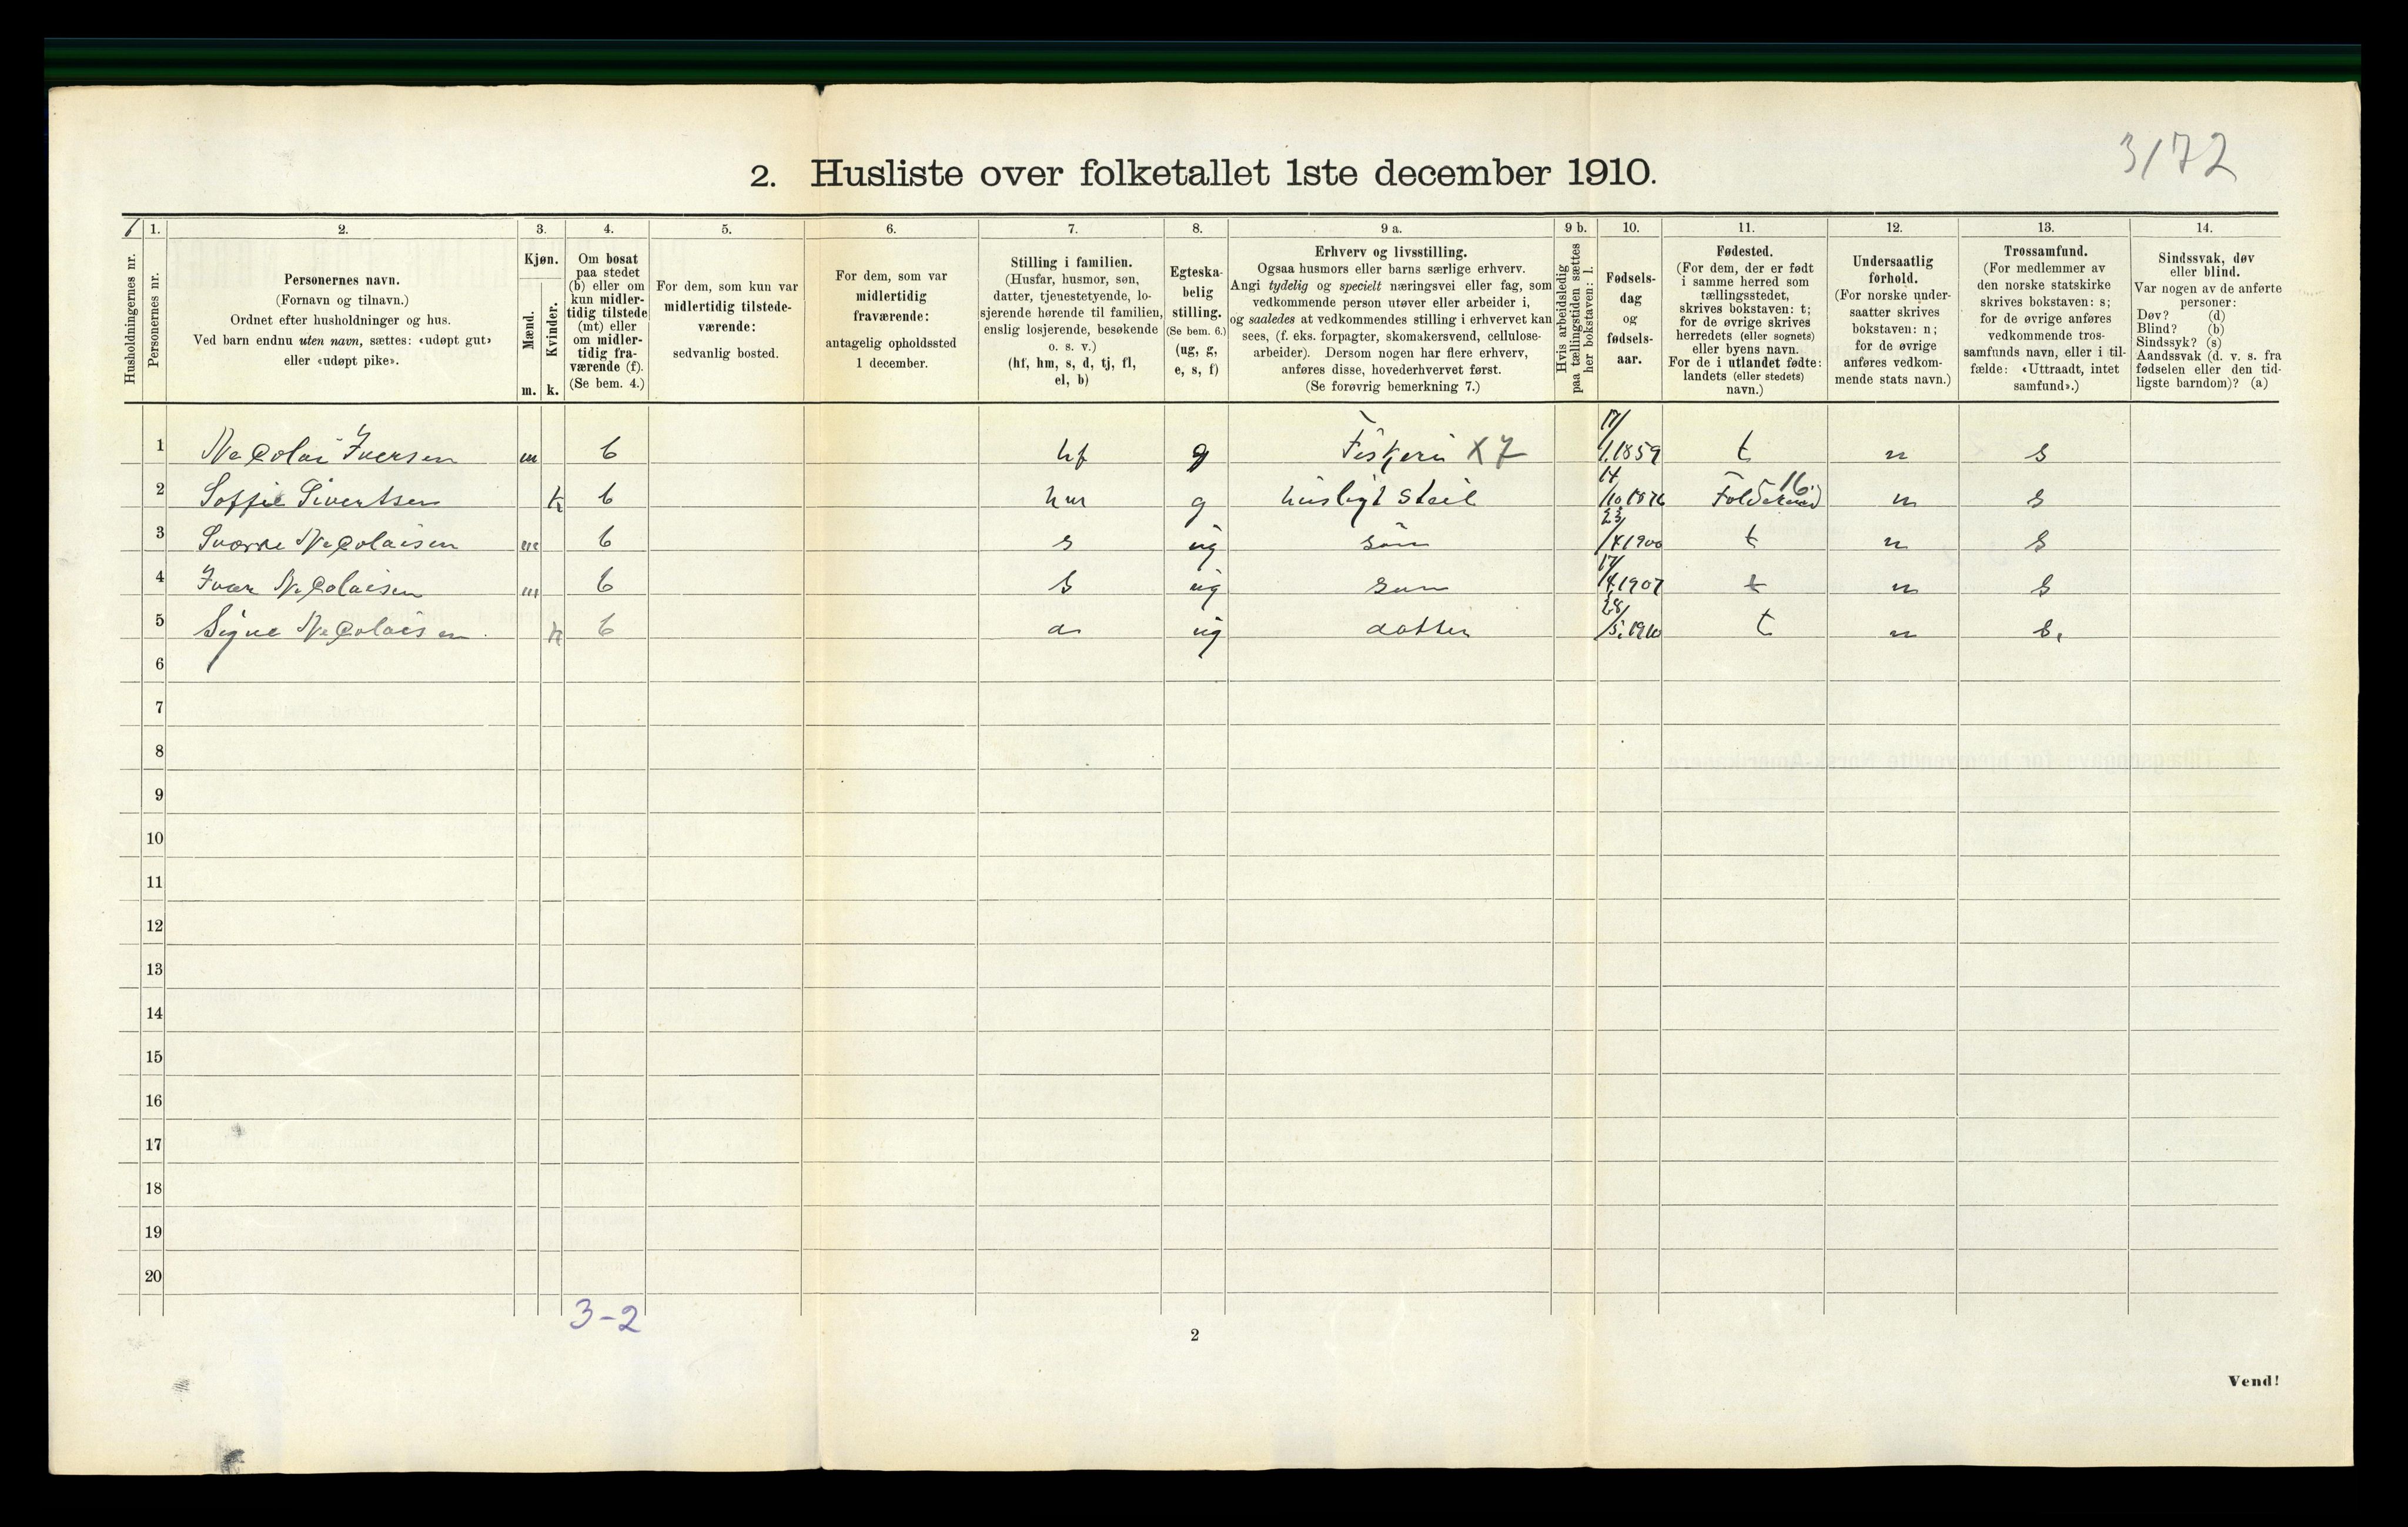 3/72
2. Husliste over folketallet 1ste december 1910.
1. 2. 3. 4. 5. 6. 7. 8. 9 a. 9 b. 10. 11. 12. 13. 14.
Husholdningernes nr.
Personernes nr.
Personernes navn.
(Fornavn og tilnavn.)
Ordnet efter husholdninger og hus.
Ved barn endnu uten navn, sættes: «udøpt gut»
eller «udøpt pike».
Kjøn.
Mænd.
Kvinder.
m. k.
Om bosat
paa stedet
(b) eller om
kun midler-
tidig tilstede
(mt) eller
om midler-
tidig fra-
værende (f).
(Se bem. 4.)
For dem, som kun var
midlertidig tilstede-
værende:
sedvanlig bosted.
For dem, som var
midlertidig
fraværende:
antagelig opholdssted
1 december.
Stilling i familien.
(Husfar, husmor, søn,
datter, tjenestetyende, lo-
sjerende hørende til familien,
enslig losjerende, besøkende
o. s. v.)
(hf, hm, s, d, tj, fl,
el, b)
Egteska-
belig
stilling.
(Se bem. 6.)
(ug, g,
e, s, f)
Erhverv og livsstilling.
Ogsaa husmors eller barns særlige erhverv.
Angi tydelig og specielt næringsvei eller fag, som
vedkommende person utøver eller arbeider i,
og saaledes at vedkommendes stilling i erhvervet kan
sees, (f. eks. forpagter, skomakersvend, cellulose-
arbeider). Dersom nogen har flere erhverv,
anføres disse, hovederhvervet først.
(Se forøvrig bemerkning 7.)
Hvis arbeidsledig
paa tællingstiden sættes
her bokstaven: l.
Fødsels-
dag
og
fødsels-
aar.
Fødested.
(For dem, der er født
i samme herred som
tællingsstedet,
skrives bokstaven: t;
for de øvrige skrives
herredets (eller sognets)
eller byens navn.
For de i utlandet fødte:
landets (eller stedets)
navn.)
Undersaatlig
forhold.
(For norske under-
saatter skrives
bokstaven: n;
for de øvrige
anføres vedkom-
mende stats navn.)
Trossamfund.
(For medlemmer av
den norske statskirke
skrives bokstaven: s;
for de øvrige anføres
vedkommende tros-
samfunds navn, eller i til-
fælde: «Uttraadt, intet
samfund».)
Sindssvak, døv
eller blind.
Var nogen av de anførte
personer:
Døv? (d)
Blind? (b)
Sindssyk? (s)
Aandssvak (d. v. s. fra
fødselen eller den tid-
ligste barndom)? (a)
1 Necolai Iversen m b hf g Fiskeri X7 17/1 1859 t n s
2 Soffie Sivertsen k b hm g husligt Stell 14/10 1876 16 n s
3 Sverre Necolaisen m b s ug sön 23/4 1900 t n s
4 Ivar Necolaisen m b s ug sön 17/4 1907 t n s
5 Signe Necolaisen k b d ug datter 28/5 1910 t n s.
6
7
8
9
10
11
12
13
14
15
16
17
18
19
20
3-2
2
Vend!